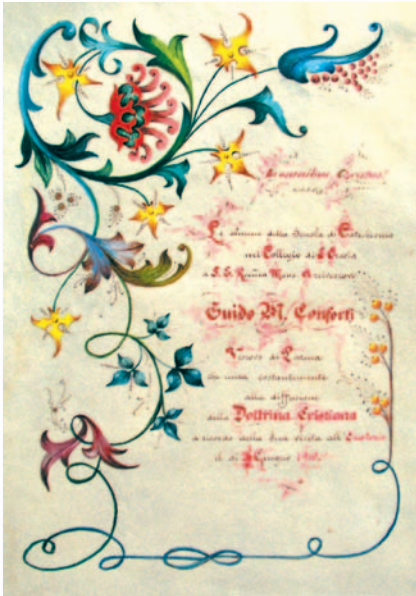 Le alunne della Scuola di Catechismo
nel Collegio di S. Orsola
a S. E. Mons. Arcivescovo
Guido M. Conforti
Vescovo di Parma
che mira costantemente
alla diffusione
della Dottrina Cristiana
a ricordo della Sua visita all'
il dì Giugno